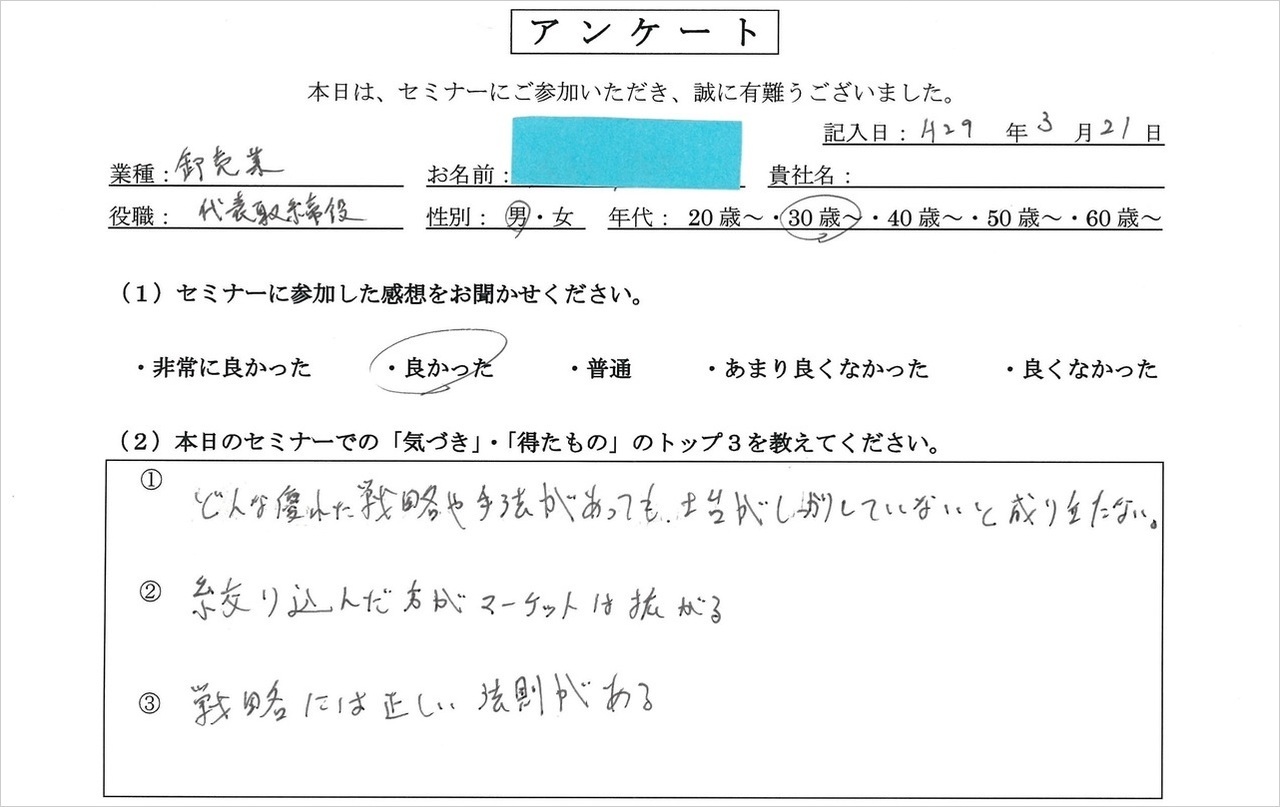 アンケート
本日は、セミナーにご参加いただき、誠に有難うございました。
記入日：H29 年 3 月 21 日
業種：卸売業 お名前： 貴社名：
役職： 代表取締役 性別： 男・女 年代： 20歳～・30歳～・40歳～・50歳～・60歳～
（1）セミナーに参加した感想をお聞かせください。
・非常に良かった ・良かった ・普通 ・あまり良くなかった ・良くなかった
（2）本日のセミナーでの「気づき」・「得たもの」のトップ3を教えてください。
① どんな優れた戦略や手法があっても、土台がしっかりしていないと成り立たない。
② 絞り込んだ方がマーケットは拡がる
③ 戦略には正しい法則がある